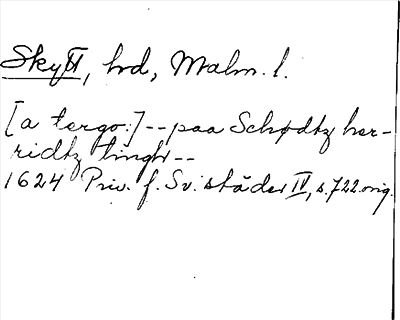 Skytt, hd, Malm. l.
[a tergo:] -- paa Schødtz her-
ridtz tingh --
1624 Priv. f. Sv. städer IV, s. 722. orig.